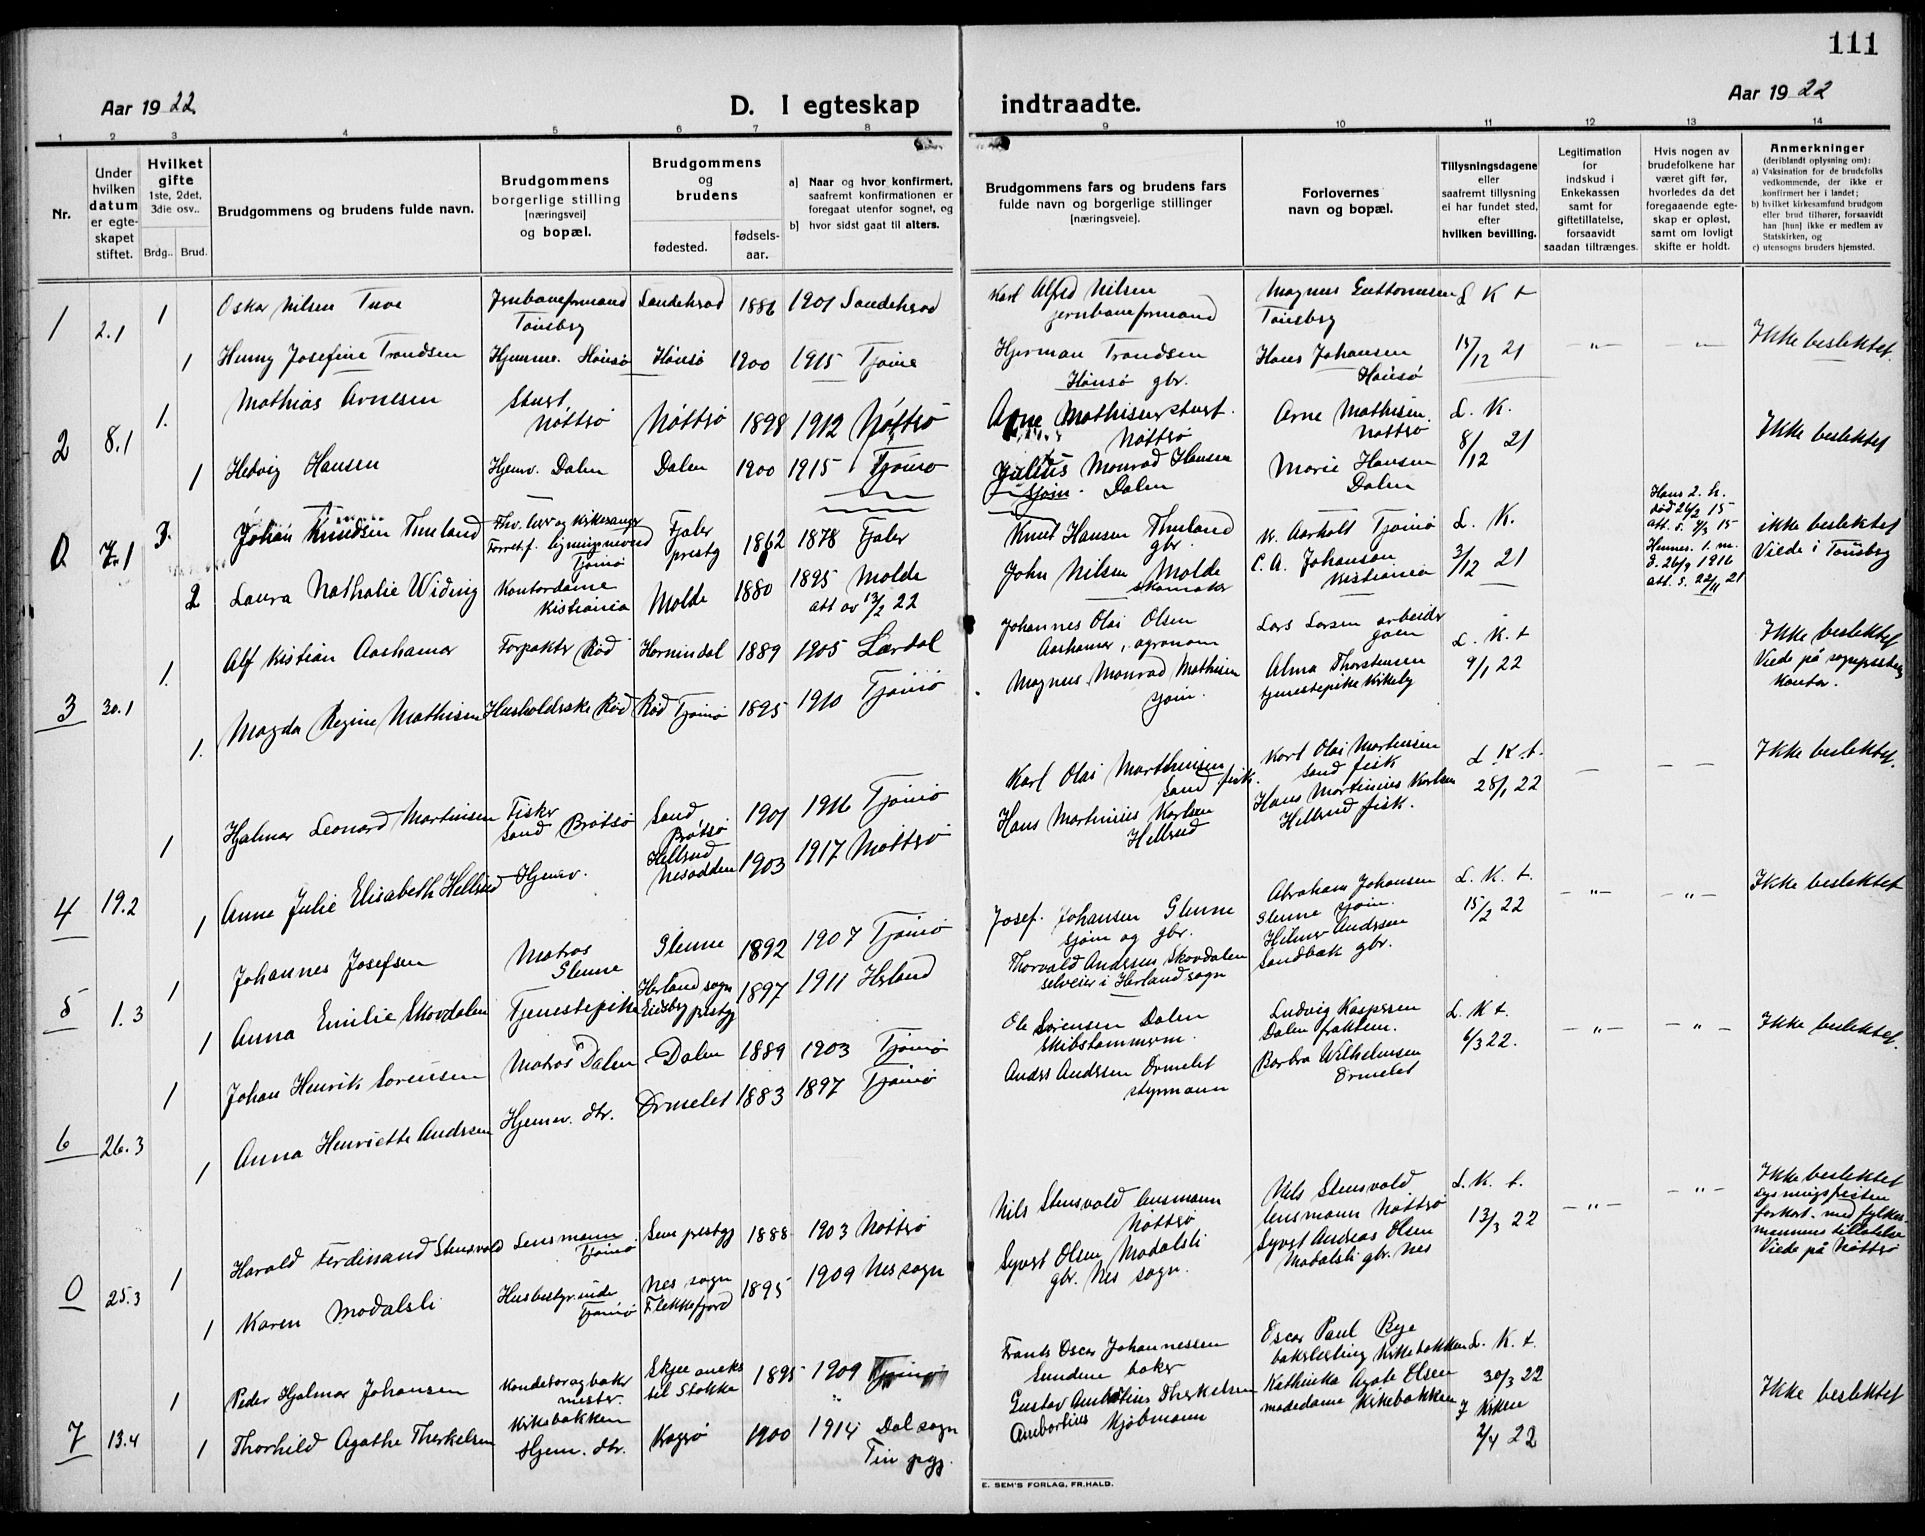 111
Aar 1922
D. I egteskap indtraadte.
Aar 1922
1 2 3 4 5 6 7 8 9 10 11 12 13 14
Nr.
Under hvilken datum er egteskapet stiftet.
Hvilket gifte
1ste, 2det, 3die osv..
Brdg.. Brud.
Brudgommens og brudens fulde navn.
Brudgommens borgerlige stilling [næringsvei] og bopæl.
Brudgommens og brudens
fødested. fødselsaar.
a) Naar og hvor konfirmert, saafremt konfirmationen er foregaat utenfor sognet, og
b) hvor sidst gaat til alters.
Brudgommens fars og brudens fars fulde navn og borgerlige stillinger [næringsveie].
Forlovernes navn og bopæl.
Tillysningsdagene eller saafremt tillysning ei har fundet sted, efter hvilken bevilling.
Legitimation for indskud i Enkekassen samt for giftetillatelse, forsaavidt saadan tiltrænges.
Hvis nogen av brudefolkene har været gift før, hvorledes da det foregaaende egteskap er opløst, samt om lovligt skifte er holdt.
Anmerkninger
(deriblandt oplysning om):
a) Vaksination for de brudefolks vedkommende, der ikke er konfirmert her i landet;
b) hvilket kirkesamfund brudgom eller brud tilhører, forsaavidt han [hun] ikke er medlem av Statskirken, og
c) utensogns bruders hjemsted.
1 2.1 1 Oskar Nilsen Tuve Jernbaneformand Tønsberg Sandeherad 1886 1901 Sandeherad Karl Alfred Nilsen jernbaneformand Magnus Guttormsen Tønsberg L K t
1 Henny Josefine Trondsen Hjemme. Hønsø Hønsø 1900 1915 Tjøme Hjerman Trondsen Hønsø gbr. Hans Johansen Hønsø 15/12 21 -"- -"- Ikke beslektet.
2 8.1 1. Mathias Arnesen Nøtterø Nøtterø 1898 1912 Nøtterø Arne Mathisen Nøtterø Arne Mathisen Nøtterø L. K.
1 Hedvig Hansen Hjemv. Dalen Dalen 1900 1915 Tjømø Julius Monrad Hansen sjøm. Dalen Marie Hansen Dalen 8/12 21 Ikke beslektet
0 7.1 3. Johan Knudsen Timland Tjømø Fjaler prestg 1862 1878 Fjaler Knut Hansen Timland gbr. K. Aarholt Tjømø L. K. Hans 2. h. død 26/2 15 ikke beslektet
2 Laura Nathalie Widing Kontordame Kristiania Molde 1880 1895 Molde att av 13/2 22 John Nilsen Molde skomaker C. A. Johansen Kristiania 3/12 21 Hennes 1. m. d. 26/9 1916 att. s. 22/11 21 Viede i Tønsberg
3 30.1 1. Alf Kristian Aashamar Forpakter Rød Hornindal 1889 1905 Lærdal Johannes Olai Olsen Aashamar, agronom Lars Larsen arbeider L. K. t
1. Magda Regine Mathisen Husholderske Rød Rød Tjømø 1895 1910 Tjømø Magnus Monrad Mathisen sjøm. Alma Thorstensen tjenestepike Kirkeby 9/1 22 Ikke beslektet Viede på sogneprestens kontor.
4 19.2 1 Hjalmar Leonard Martinsen Fisker Sand Brøtsø Sand Brøtsø 1901 1916 Tjømø Karl Olai Marthinsen Sand fisk. Karl Olai Martinsen Sand fisk L K t.
1 Anna Julie Elisabeth Hellerud Hjemv. Hellerud Nesodden 1903 1917 Nøtterø Hans Martinius Karlsen Hellerud Hans Martinius Karlsen Hellerud fisk. 28/1 22 - - Ikke beslektet.
5 1.3 1 Johannes Josefsen Matros Glenne Glenne 1892 1907 Tjømø Josef Johansen Glenne sjøm og gbr. Abraham Johansen Glenne sjøm. L. K. t.
1 Anna Emilie Skovdalen Tjenestepike Herland sogn Eidsberg prestg 1897 1911 Herland Thorvald Andersen Skovdalen selveier i Herland sogn Hilmar Andersen Sandbæk gbr. 15/2 22 -"- -"- Ikke beslektet
6 26.3 1 Johan Henrik Sørensen Matros Dalen Dalen 1889 1903 Tjømø Ole Sørensen Dalen skibstømmerm. Ludvig Kaspersen Dalen L. K t.
1 Anna Henriette Andersen Hjemv. dtr. Ormelet 1883 1897 Tjømø Anders Andersen Ormelet styrmann Barbra Wilhelmsen Ormelet 6/3 22. -"- -"- Ikke beslektet.
0 25.3 1 Harald Ferdinand Stensvold Lensmann Tjømø Sem prestgj 1888 1903 Nøtterø Nils Stensvold lensmann Nøtterø Nils Stensvold lensmann Nøtterø L. K. t. -"- -"- Ikke beslektet Lysningsfristen forkort. med fylkesmannens tillatelse Viede på Nøtterø
1 Karen Modalsli Husbestyrinde Tjømø Nes sogn Flekkefjord 1895 1909 Nes sogn Syvert Olsen Modalsli gbr. Nes sogn. Syvert Andreas Olsen Modalsli gbr. Nes 13/3 22
7 13.4 1 Peder Hjalmar Johansen Konditor og bakermester. Kirkebakken Skjee aneks til Stokke 1895 1909 Frants Oscar Johannessen Sundene baker Oscar Paul Bye bakerlærling Kirkebakken L. K. t.
1 Thorhild Agathe Therkelsen Hjem. dtr. Kragerø 1900 1914 Dal sogn Tin pgj. Gustav Therkelsen Kjøbmann Kathinka Agate Olsen Kirkebakken 30/3 22 I kirken 2/4 22 Ikke beslektet
E. SEM'S FORLAG, FR.HALD.